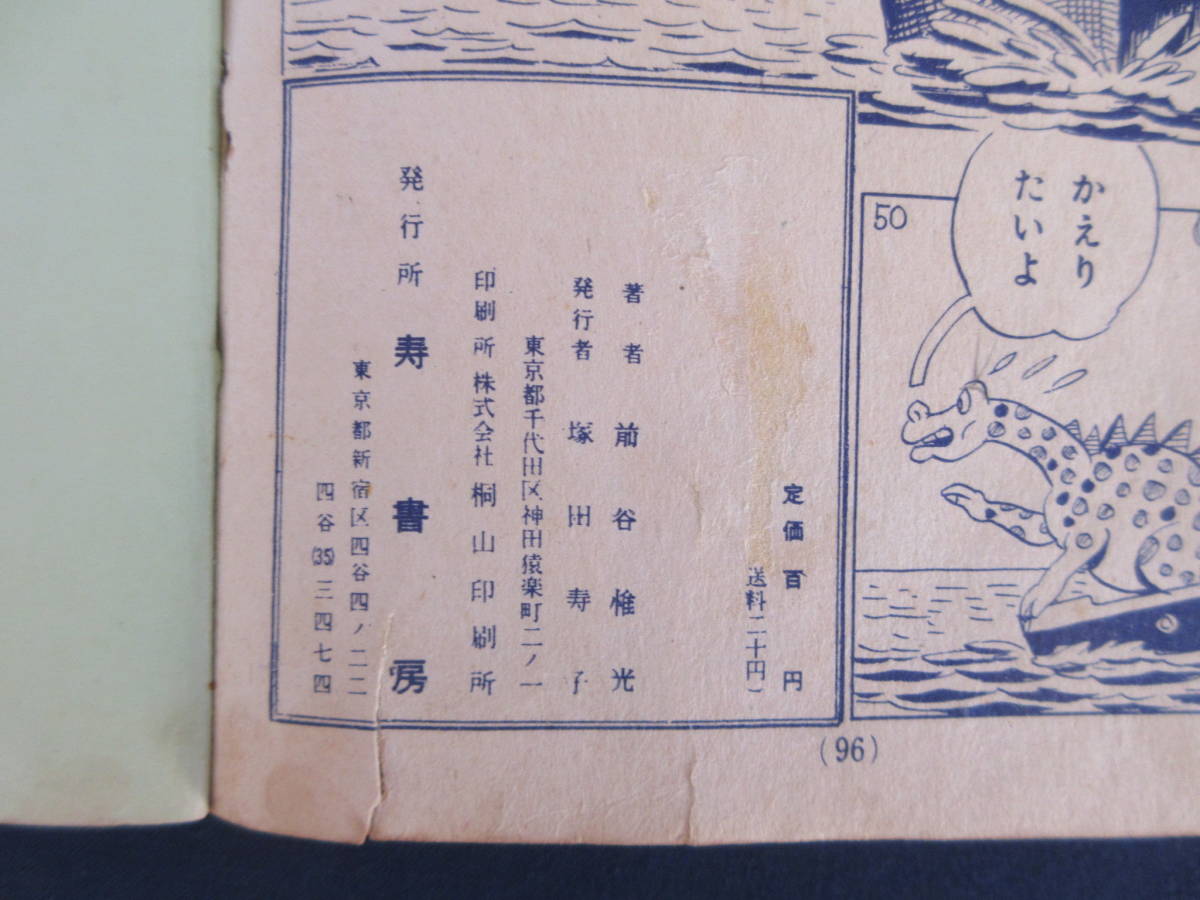 かえり
たいよ
50
定価百円
送料二十円)
著者 前谷惟光
発行者 塚田寿子
東京都千代田区神田猿楽町二ノ一
印刷所 株式会社 桐山印刷所
発行所 寿書房
東京都新宿区四谷四ノ二二
四谷(35)三四七四
(96)